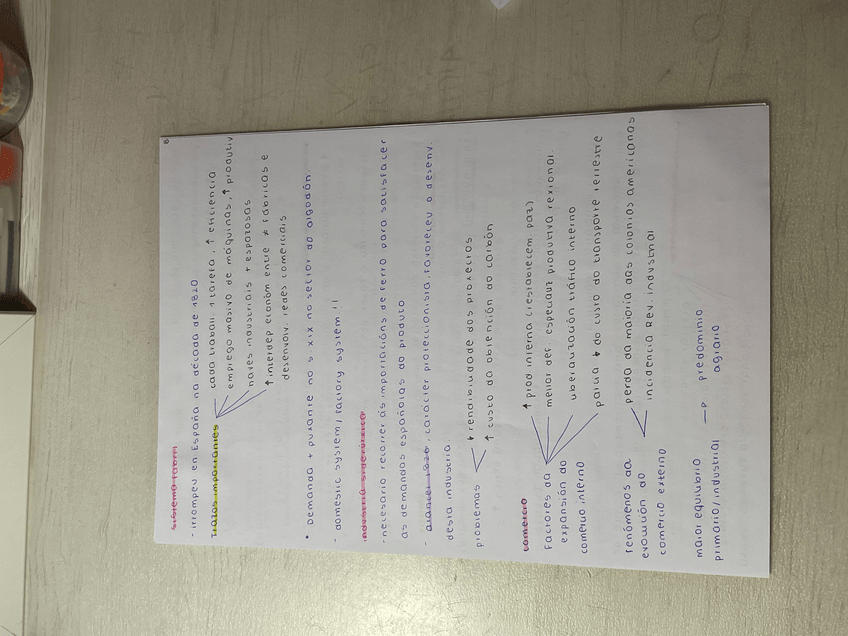 sistema fabril
- irrompeu en España na década de 1820
trazos importantes
cada traball. 1 tarefa, ↑ eficiencia
emprego masivo de máquinas, ↑ produtiv
naves industriais + espazosas
↑ interdep económ entre ≠ fábricas e
desenvolv. redes comerciais
• Demanda + puxante no s. XIX no sector do algodón
- domestic system / factory system !!
industria siderúrxica
- necesario recorrer ás importacións de ferro para satisfacer
as demandas españolas do produto
- arancel 1826, carácter proteccionista, favoreceu o desenv.
desta industria
problemas
↓ rendibilidade dos proxectos
↑ custo da obtención do carbón
comercio
Factores da
expansión do
comercio interno
↑ prod. interna (restablecem. paz)
mellor def. especializ produtiva rexional.
liberalización tráfico interno
parcial ↓ do custo do transporte terrestre
Fenómenos da
evolución do
comercio externo
perda da maioría das colonias americanas
incidencia Rev. industrial
maior equilibrio
primario/industrial
→ predominio
agrario